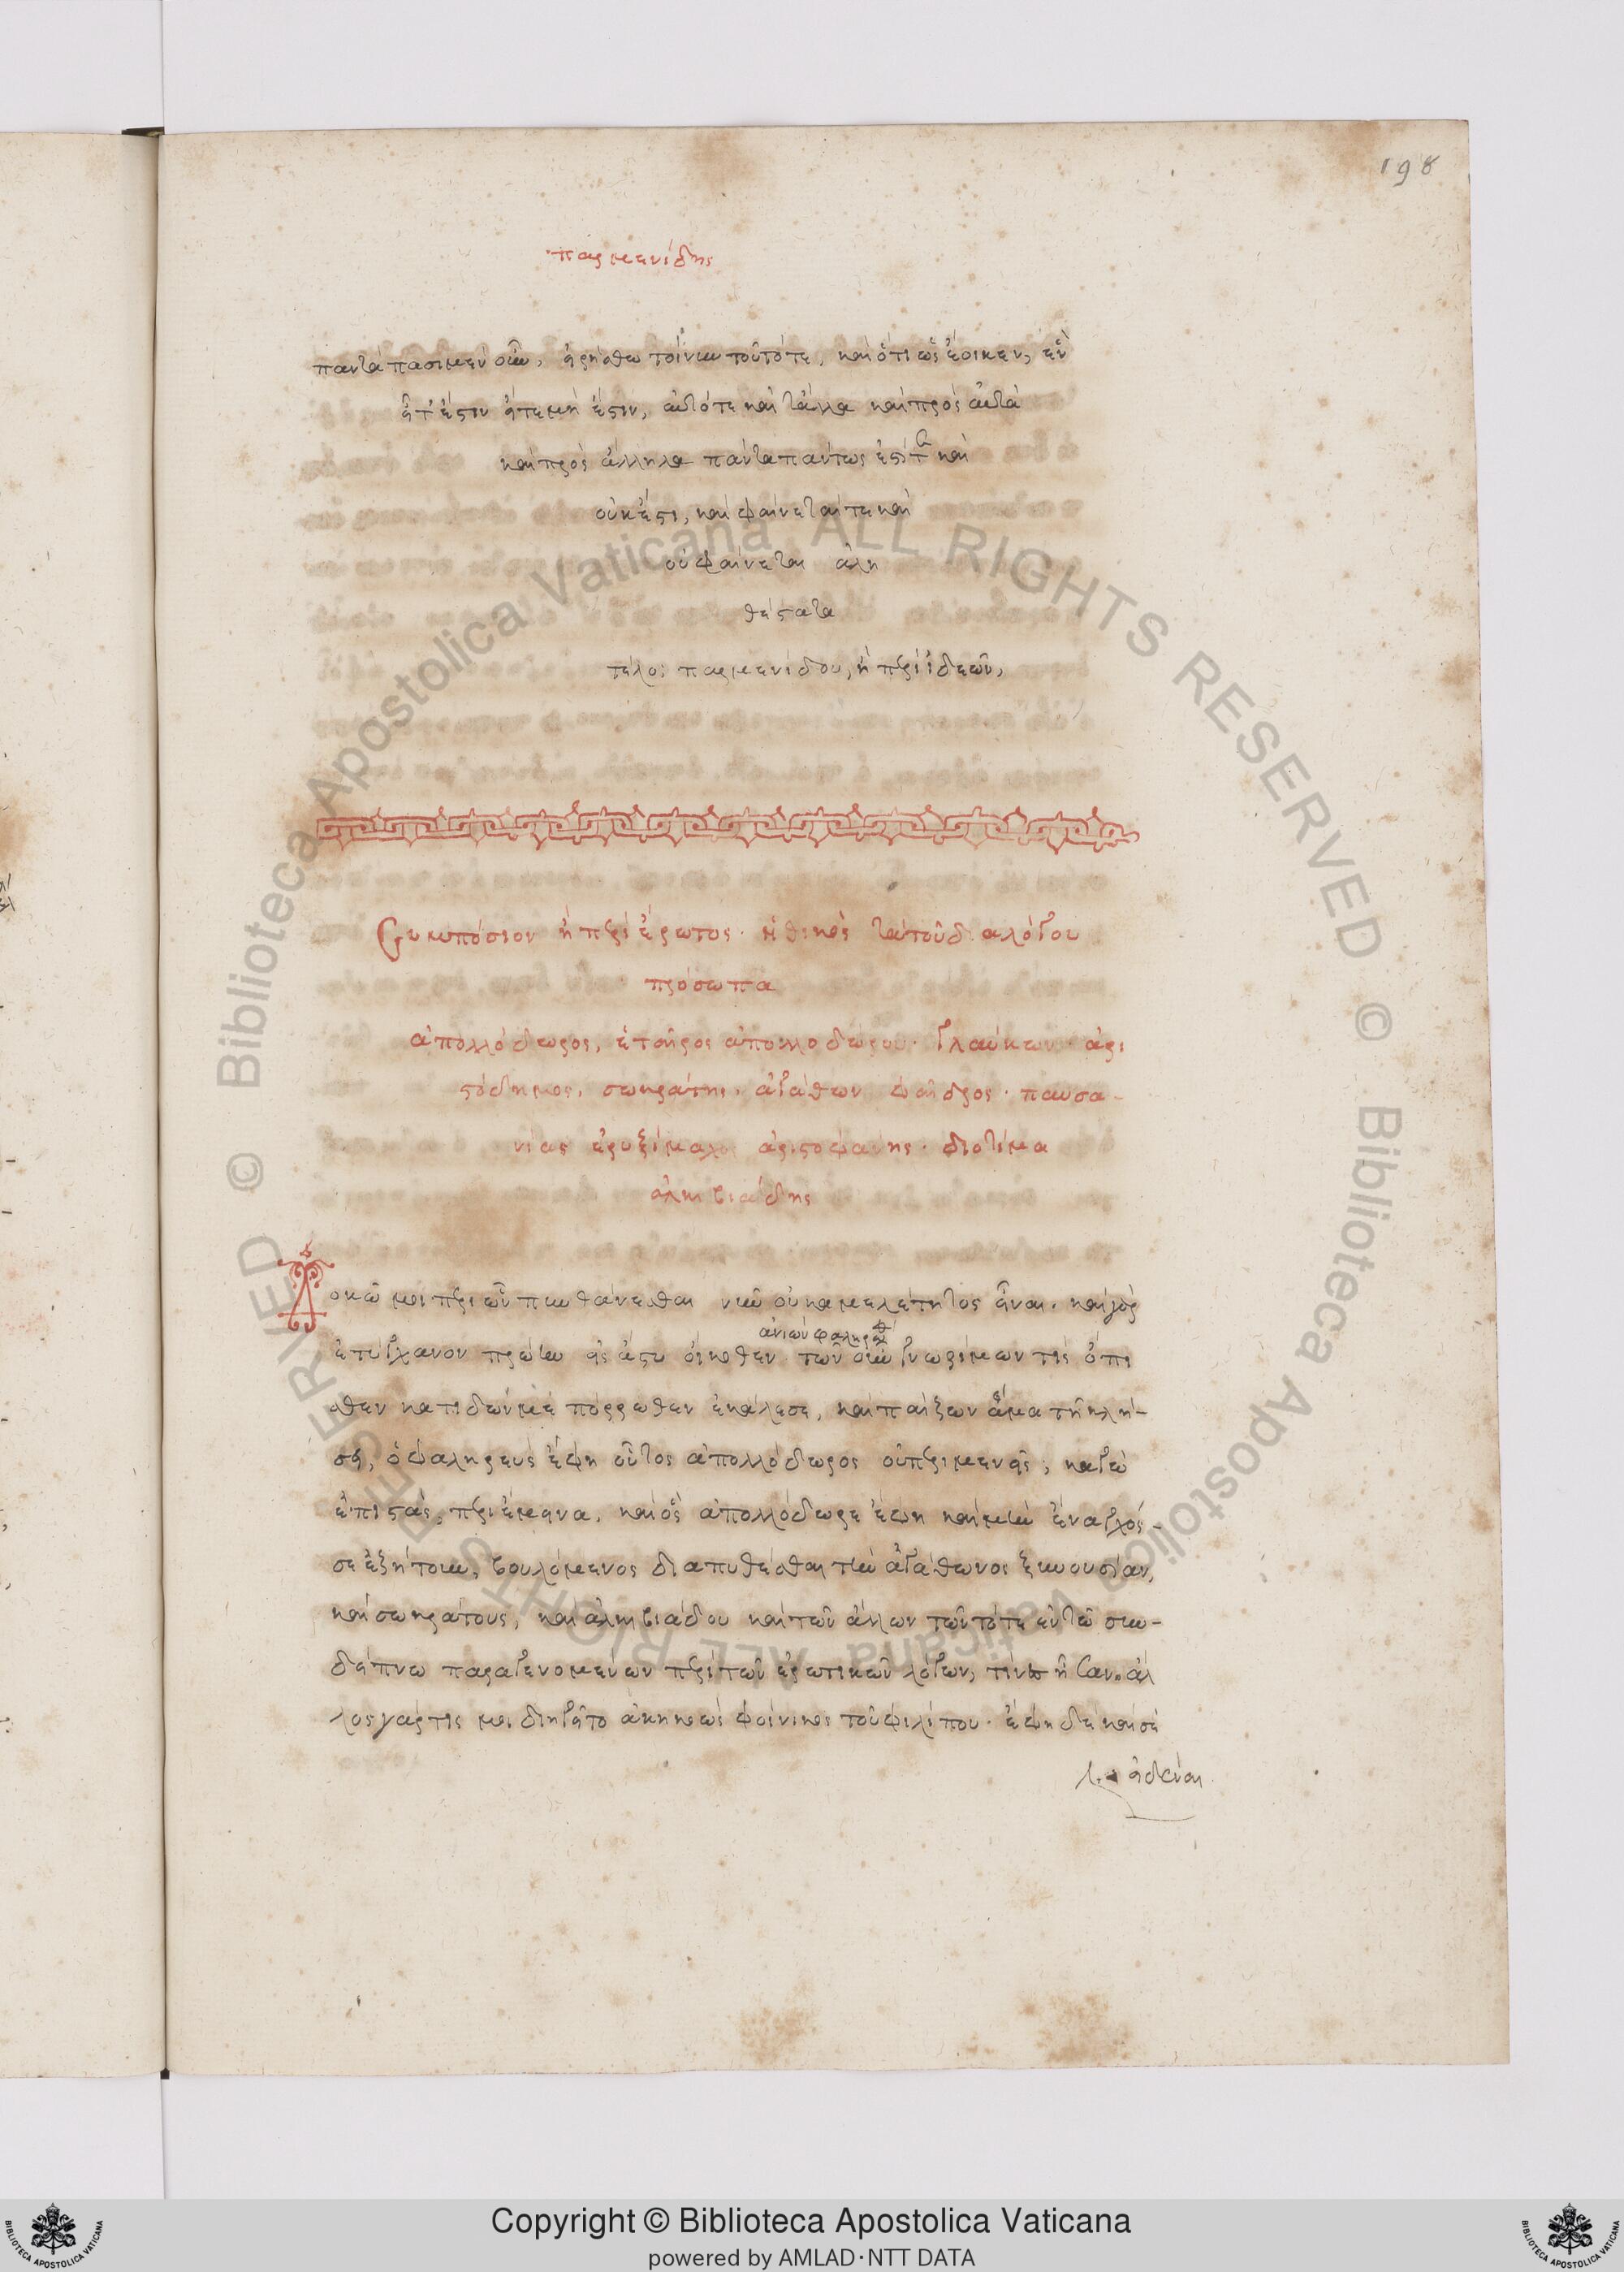 198
παρμενίδης
παντάπασι μὲν οὖν, εἰρήσθω τοίνυν τοῦτό τε, καὶ ὅτι ὡς ἔοικεν, ἓν
εἴτ' ἔστιν εἴτε μὴ ἔστιν, αὐτό τε καὶ τἆλλα καὶ πρὸς αὐτὰ
καὶ πρὸς ἄλληλα πάντα πάντως ἐστί τε καὶ
οὐκ ἔστι, καὶ φαίνεταί τε καὶ
οὐ φαίνεται ἀλη
θέστατα
τέλος παρμενίδου, ἢ περὶ ἰδεῶν,
Συμπόσιον ἢ περὶ ἔρωτος· ἠθικὸς τὰ τοῦ διαλόγου
πρόσωπα
ἀπολλόδωρος, ἑταῖρος ἀπολλοδώρου· γλαύκων· ἀρι
στόδημος, σωκράτης, ἀγάθων φαῖδρος· παυσα-
νίας ἐρυξίμαχος ἀριστοφάνης· διοτίμα
ἀλκιβιάδης
Δοκῶ μοι περὶ ὧν πυνθάνεσθαι οὐκ ἀμελέτητος εἶναι. καὶ γὰρ
ἀνιὼν φαληρόθεν
ἐτύγχανον πρώην εἰς ἄστυ οἴκοθεν τῶν οὖν γνωρίμων τις ὄπι
σθεν κατιδών με πόρρωθεν ἐκάλεσε, καὶ παίζων ἅμα τῇ κλή-
σει, ὁ φαληρεὺς ἔφη οὗτος ἀπολλόδωρος οὐ περιμενεῖς; κἀγὼ
ἐπιστὰς, περιέμεινα. καὶ ὃς ἀπολλόδωρε ἔφη καὶ μὴν ἔναγχός
σε ἐζήτουν, βουλόμενος διαπυθέσθαι τὴν ἀγάθωνος ξυνουσίαν,
καὶ σωκράτους, καὶ ἀλκιβιάδου καὶ τῶν ἄλλων τῶν τότε ἐν τῷ συν-
δείπνω παραγενομένων περὶ τῶν ἐρωτικῶν λόγων, τίνες ἦσαν. ἄλ
λος γάρ τις μοι διηγεῖτο ἀκηκοὼς φοίνικος τοῦ φιλίππου· ἔφη δὲ καὶ σὲ
εἰδέναι
Copyright © Biblioteca Apostolica Vaticana
powered by AMLAD·NTT DATA
© Biblioteca Apostolica Vaticana ALL RIGHTS RESERVED
© Biblioteca Apostolica Vaticana ALL RIGHTS RESERVED